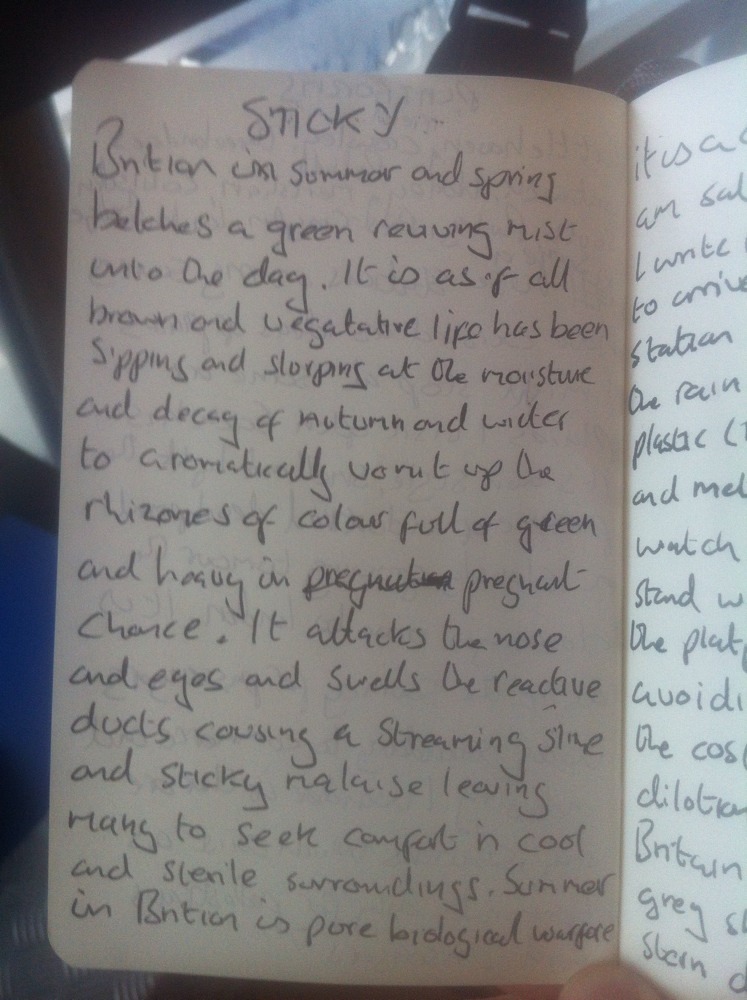 STICKY
Britian in summer and spring
belches a green reviving mist
unto the day. It is as if all
brown and vegatative life has been
Sipping and slorping at the moisture
and decay of Autumn and winter
to aromatically vomit up the
rhizomes of colour full of green
and heavy in pregnant
Chance. It attacks the nose
and eyes and swells the reactive
ducts causing a streaming slime
and sticky malaise leaving
many to seek comfort in cool
and sterile surroundings. Summer
in Britian is pure biological warfare
it is a
am
I write
to arrive
station
the rain
plastic
and
watch
stand
the
the
Britain
grey
stern